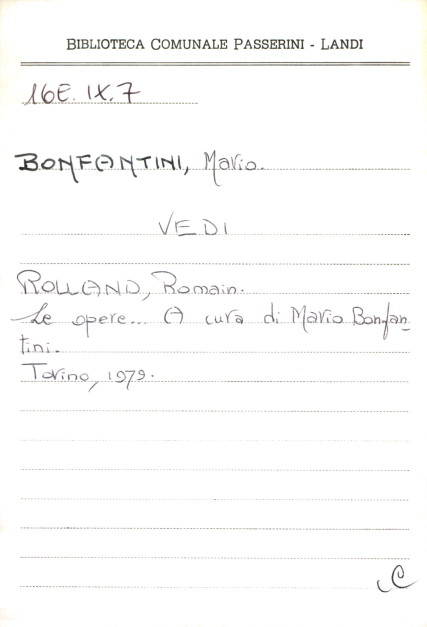 BIBLIOTECA COMUNALE PASSERINI - LANDI
16E. IX. 7
BONFANTINI, Mario.
VEDI
ROLLAND, Romain.
Le opere... A cura di Mario Bonfan-
tini.
Torino, 1979.
C